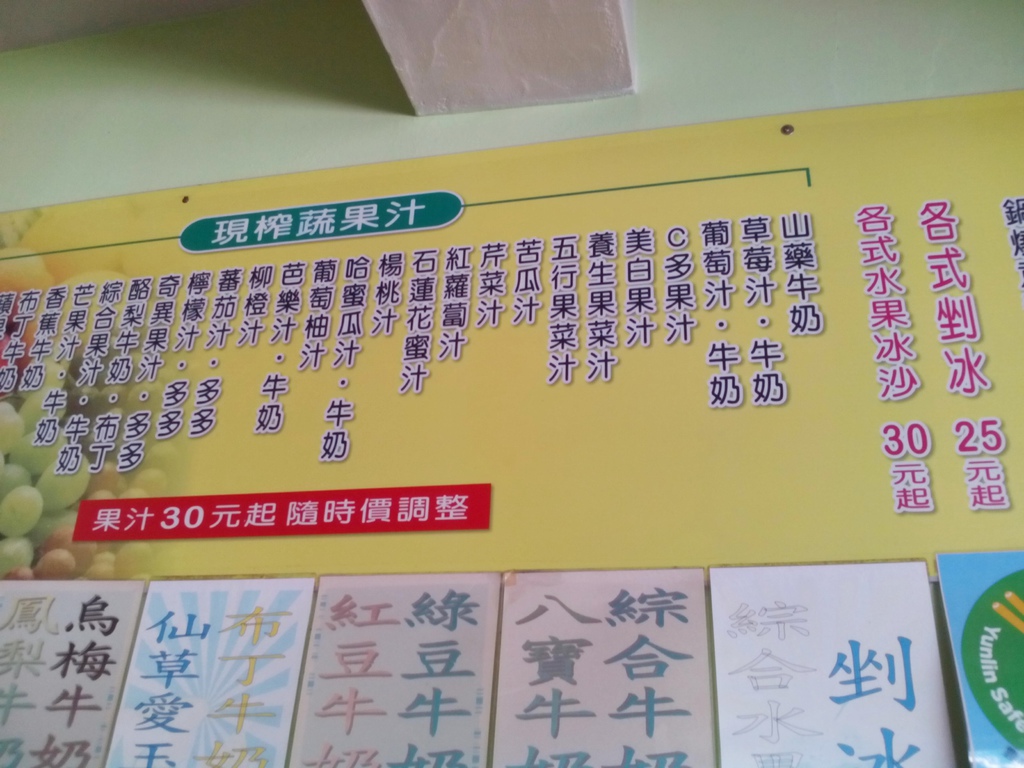 現榨蔬果汁
山藥牛奶
草莓汁·牛奶
葡萄汁·牛奶
C多果汁
美白果汁
養生果菜汁
五行果菜汁
苦瓜汁
芹菜汁
紅蘿蔔汁
石蓮花蜜汁
楊桃汁
哈蜜瓜汁·牛奶
葡萄柚汁
芭樂汁·牛奶
柳橙汁
蕃茄汁·多多
檸檬汁·多多
奇異果汁·多多
酪梨牛奶·布丁
綜合果汁·牛奶
芒果汁·牛奶
香蕉牛奶
布丁牛奶
果汁30元起 隨時價調整
各式剉冰 25元起
各式水果冰沙 30元起
鍋燒
剉冰
綜合水果
綜合牛奶
八寶牛奶
綠豆牛奶
紅豆牛奶
布丁牛奶
仙草愛玉
烏梅牛奶
鳳梨牛奶
Yunlin Safe